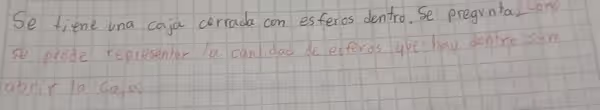 Se tiene una caja cerrada con esferas dentro. Se pregunta,
se puede representar la cantidad de esferas que hay dentro sin
abrir la caja